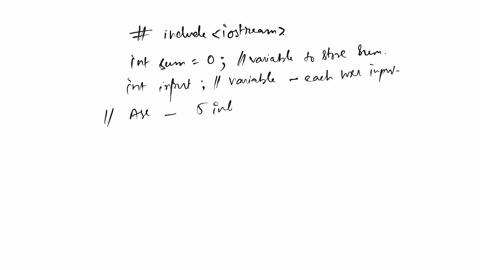 # include <iostream>
int sum = 0 ; // variable to store sum.
int input ; // variable - each user input.
// Ask - 5 int